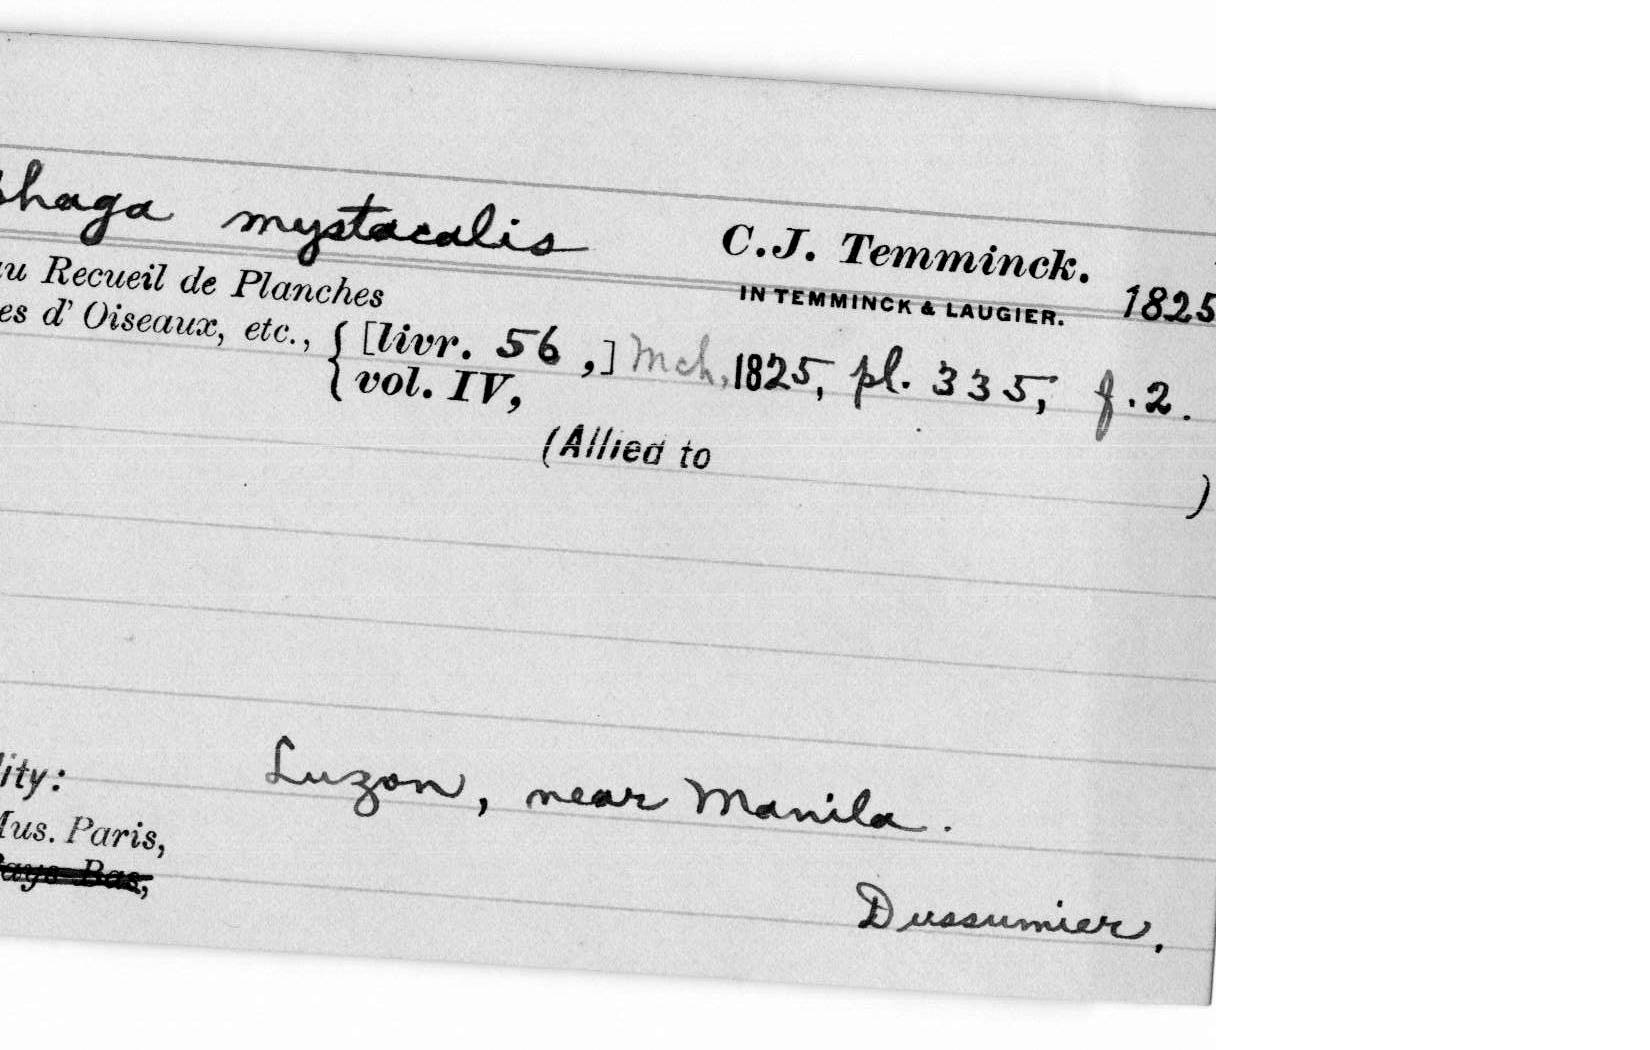 phaga mystacalis C.J. Temminck. 1825
au Recueil de Planches IN TEMMINCK & LAUGIER.
es d' Oiseaux, etc., { [livr. 56 ,] Mch, 1825, pl. 335, f. 2.
vol. IV,
(Allied to )
lity: Luzon, near Manila.
Mus. Paris,
Pays Bas,
Dussumier.